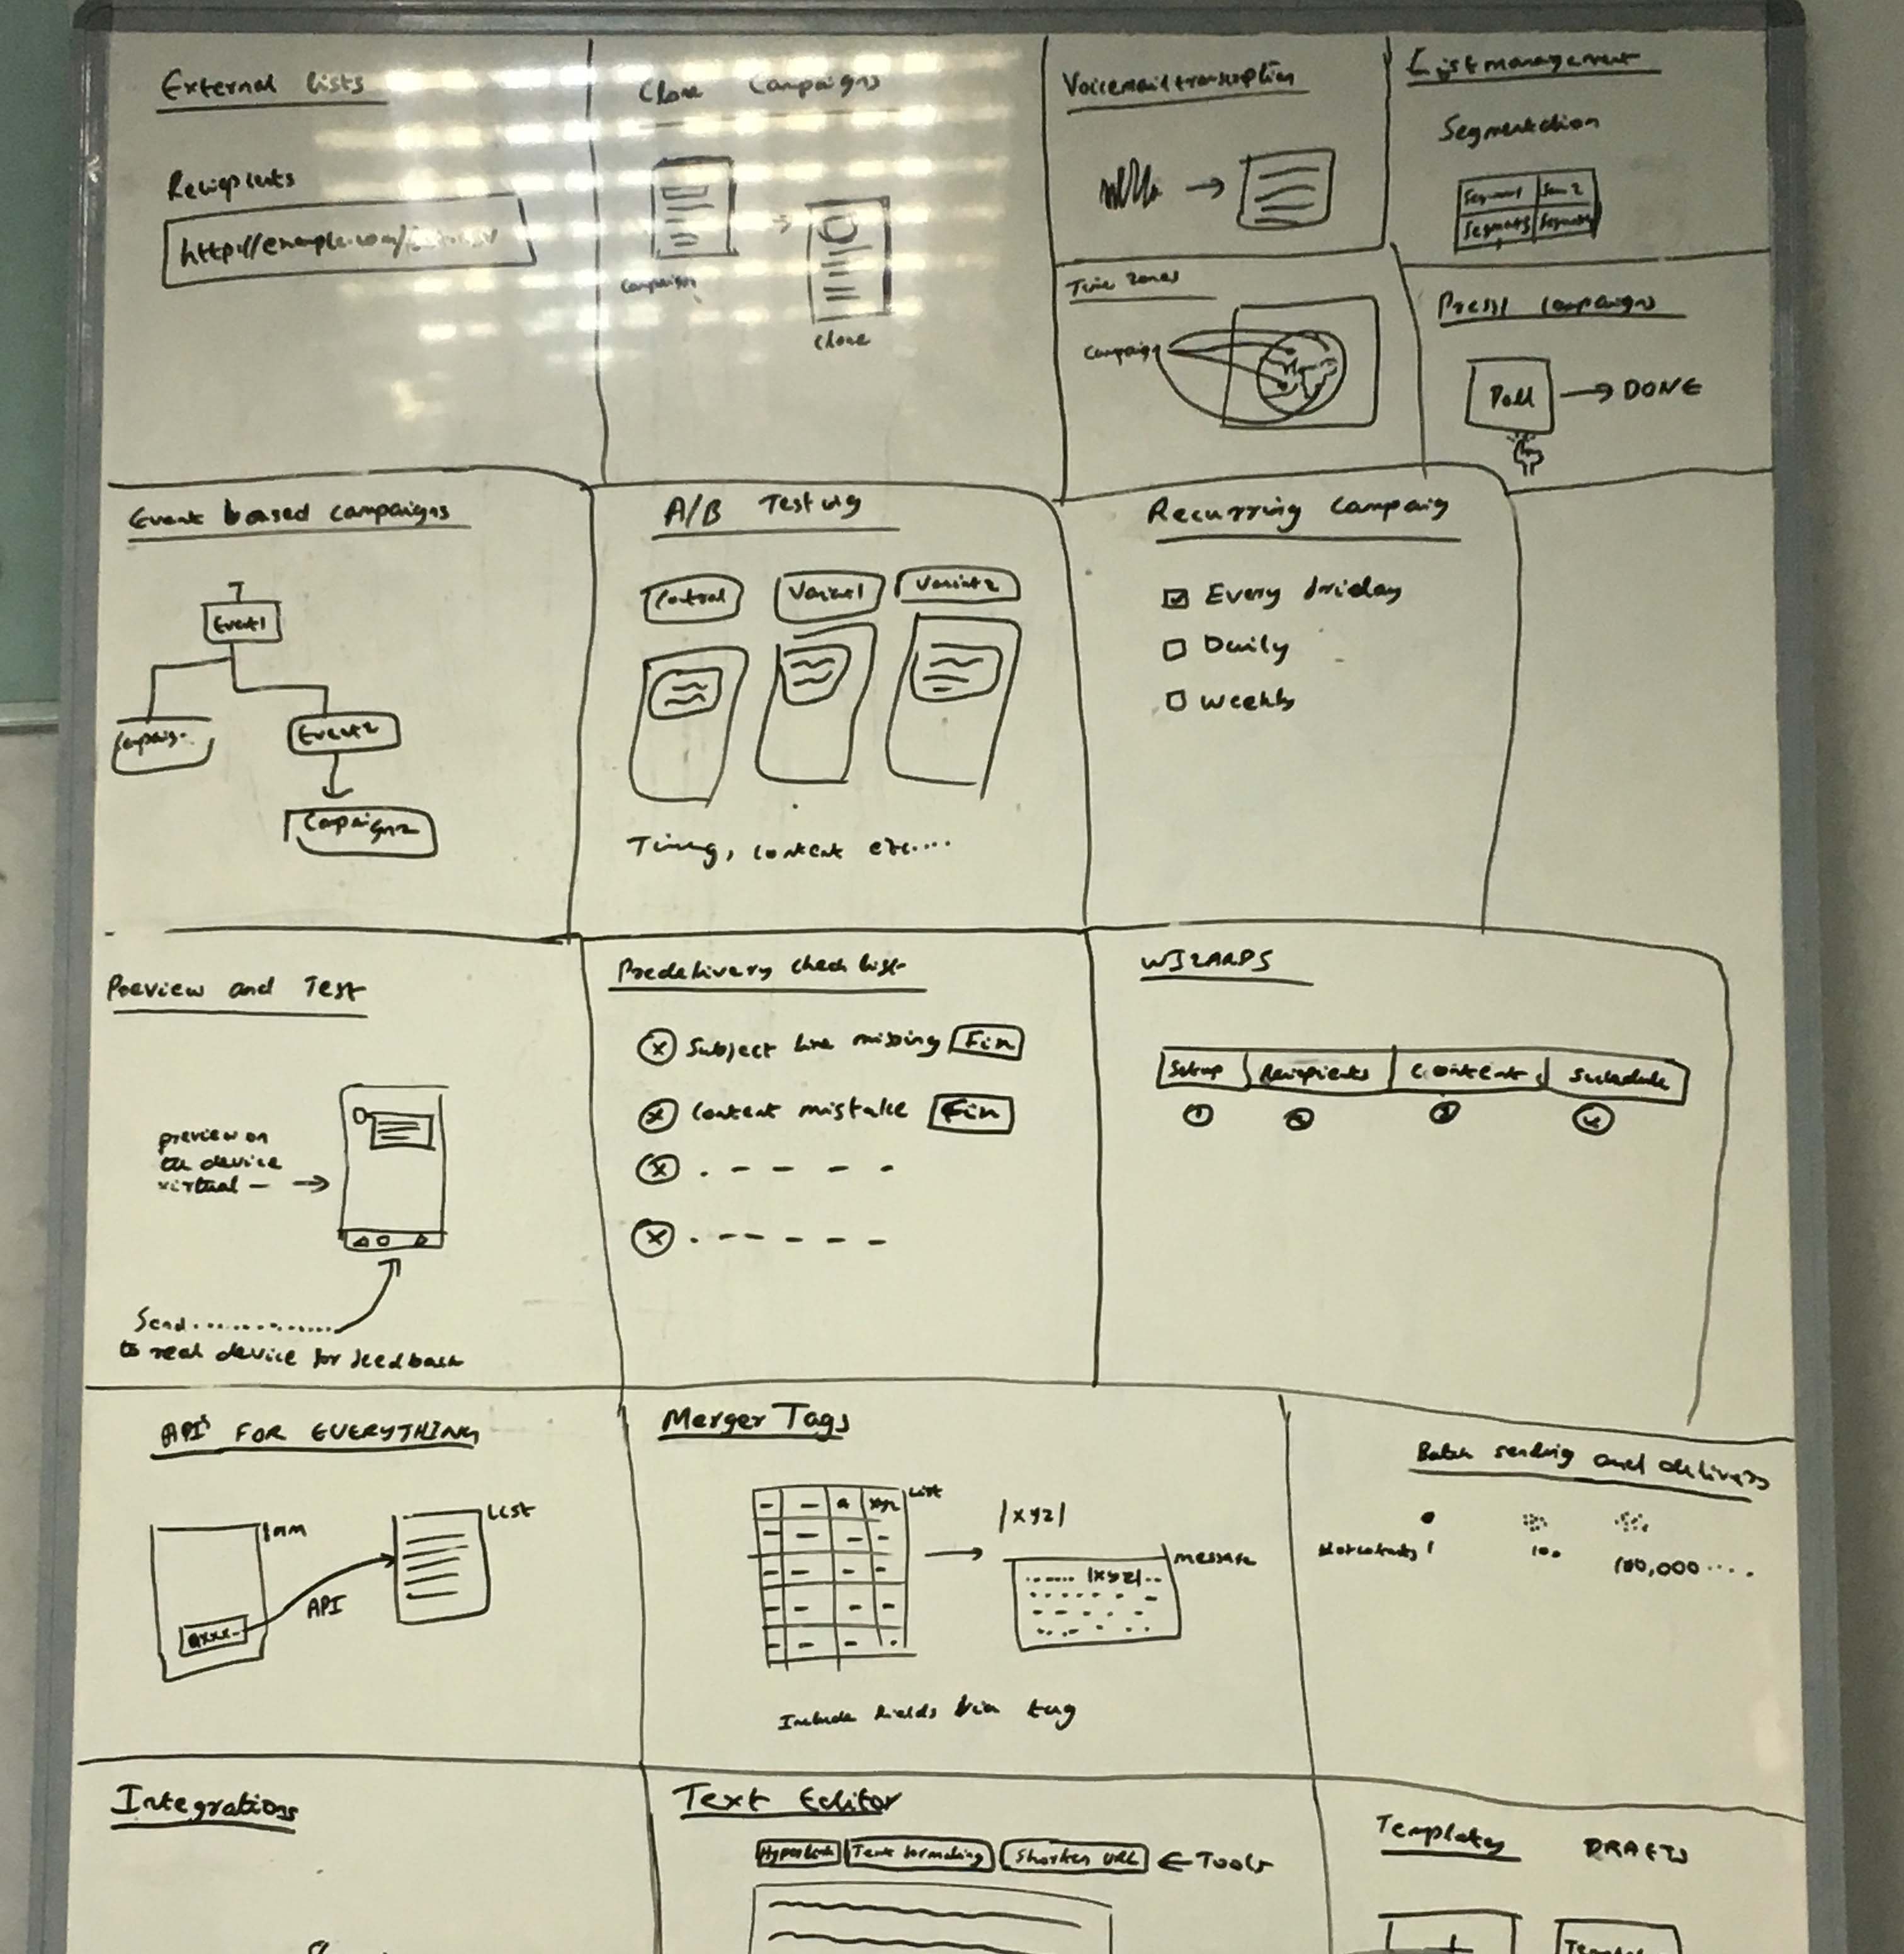 External lists
Recieplents
http://example.com/
Clone Campaigns
Campaign
Clone
Voicemail transcription
List management
Segmentation
Segment1 Sem 2
Segment3 Segment
Time Zones
Campaign
Press1 Campaigns
Poll → DONE
Event based campaigns
Event1
Campaign
Event2
Campaign2
A/B Testing
Control Variant1 Variant2
Timing, content etc....
Recurring Campaig
Every friday
Daily
weekly
Preview and Test
preview on
the device
virtual
Send
to real device for feedback
Predelivery check list
Subject line missing Fix
Content mistake Fix
WIZARDS
Setup Reciepients Content Schedule
1 2 3 4
API's FOR EVERYTHING
List
API
axxx
Merger Tags
a xyz List
|xyz|
message
|xyz|
Include fields via tag
Batch sending and delivery
1 100 100,000....
Integrations
Text Editor
Hyperlink Text formating Shorten URL ← Tools
Templates DRAFTS